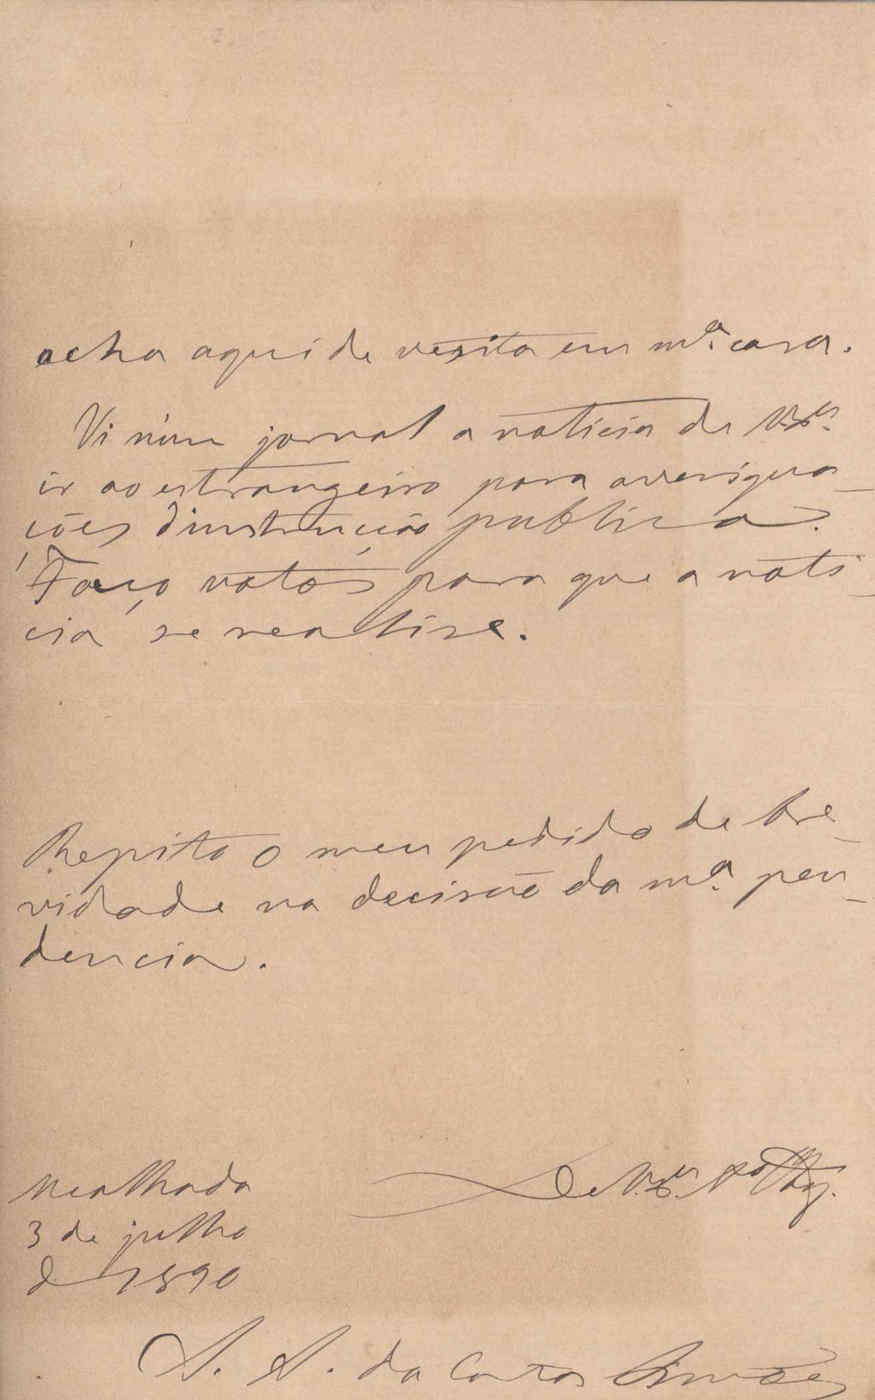 acha aqui de vesita em mª. casa.
Vi n'um jornal a noticia de V. Exª.
ir ao estrangeiro para averigua-
ções d'instrucção publica.
Faço votos para que a noti-
cia se realise.
Repito o meu pedido de bre-
vidade na decisão da mª pen-
dencia.
Mealhada
De V. Exª.
3 de julho
de 1890
A. A. da Costa Simões